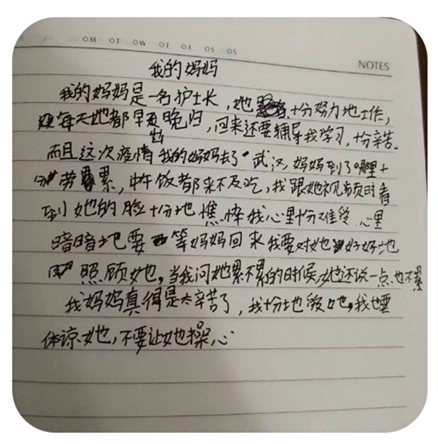 OM OT OW OT OF OS OS
NOTES
我的妈妈
我的妈妈是一名护士长，她十分努力地工作，
每天她都早出晚归，回来还要辅导我学习，十分辛苦。
而且这次疫情我的妈妈去了武汉，妈妈到了哪里十
分劳累，中午饭都来不及吃，我跟她视频时看
到她的脸十分地憔悴我心里十分难受，心里
暗暗地要等妈妈回来我要对她好好地
照顾她，当我问她累不累的时候，她还说一点也不累
我妈妈真得是太辛苦了，我十分地爱她，我也要
体谅她，不要让她操心